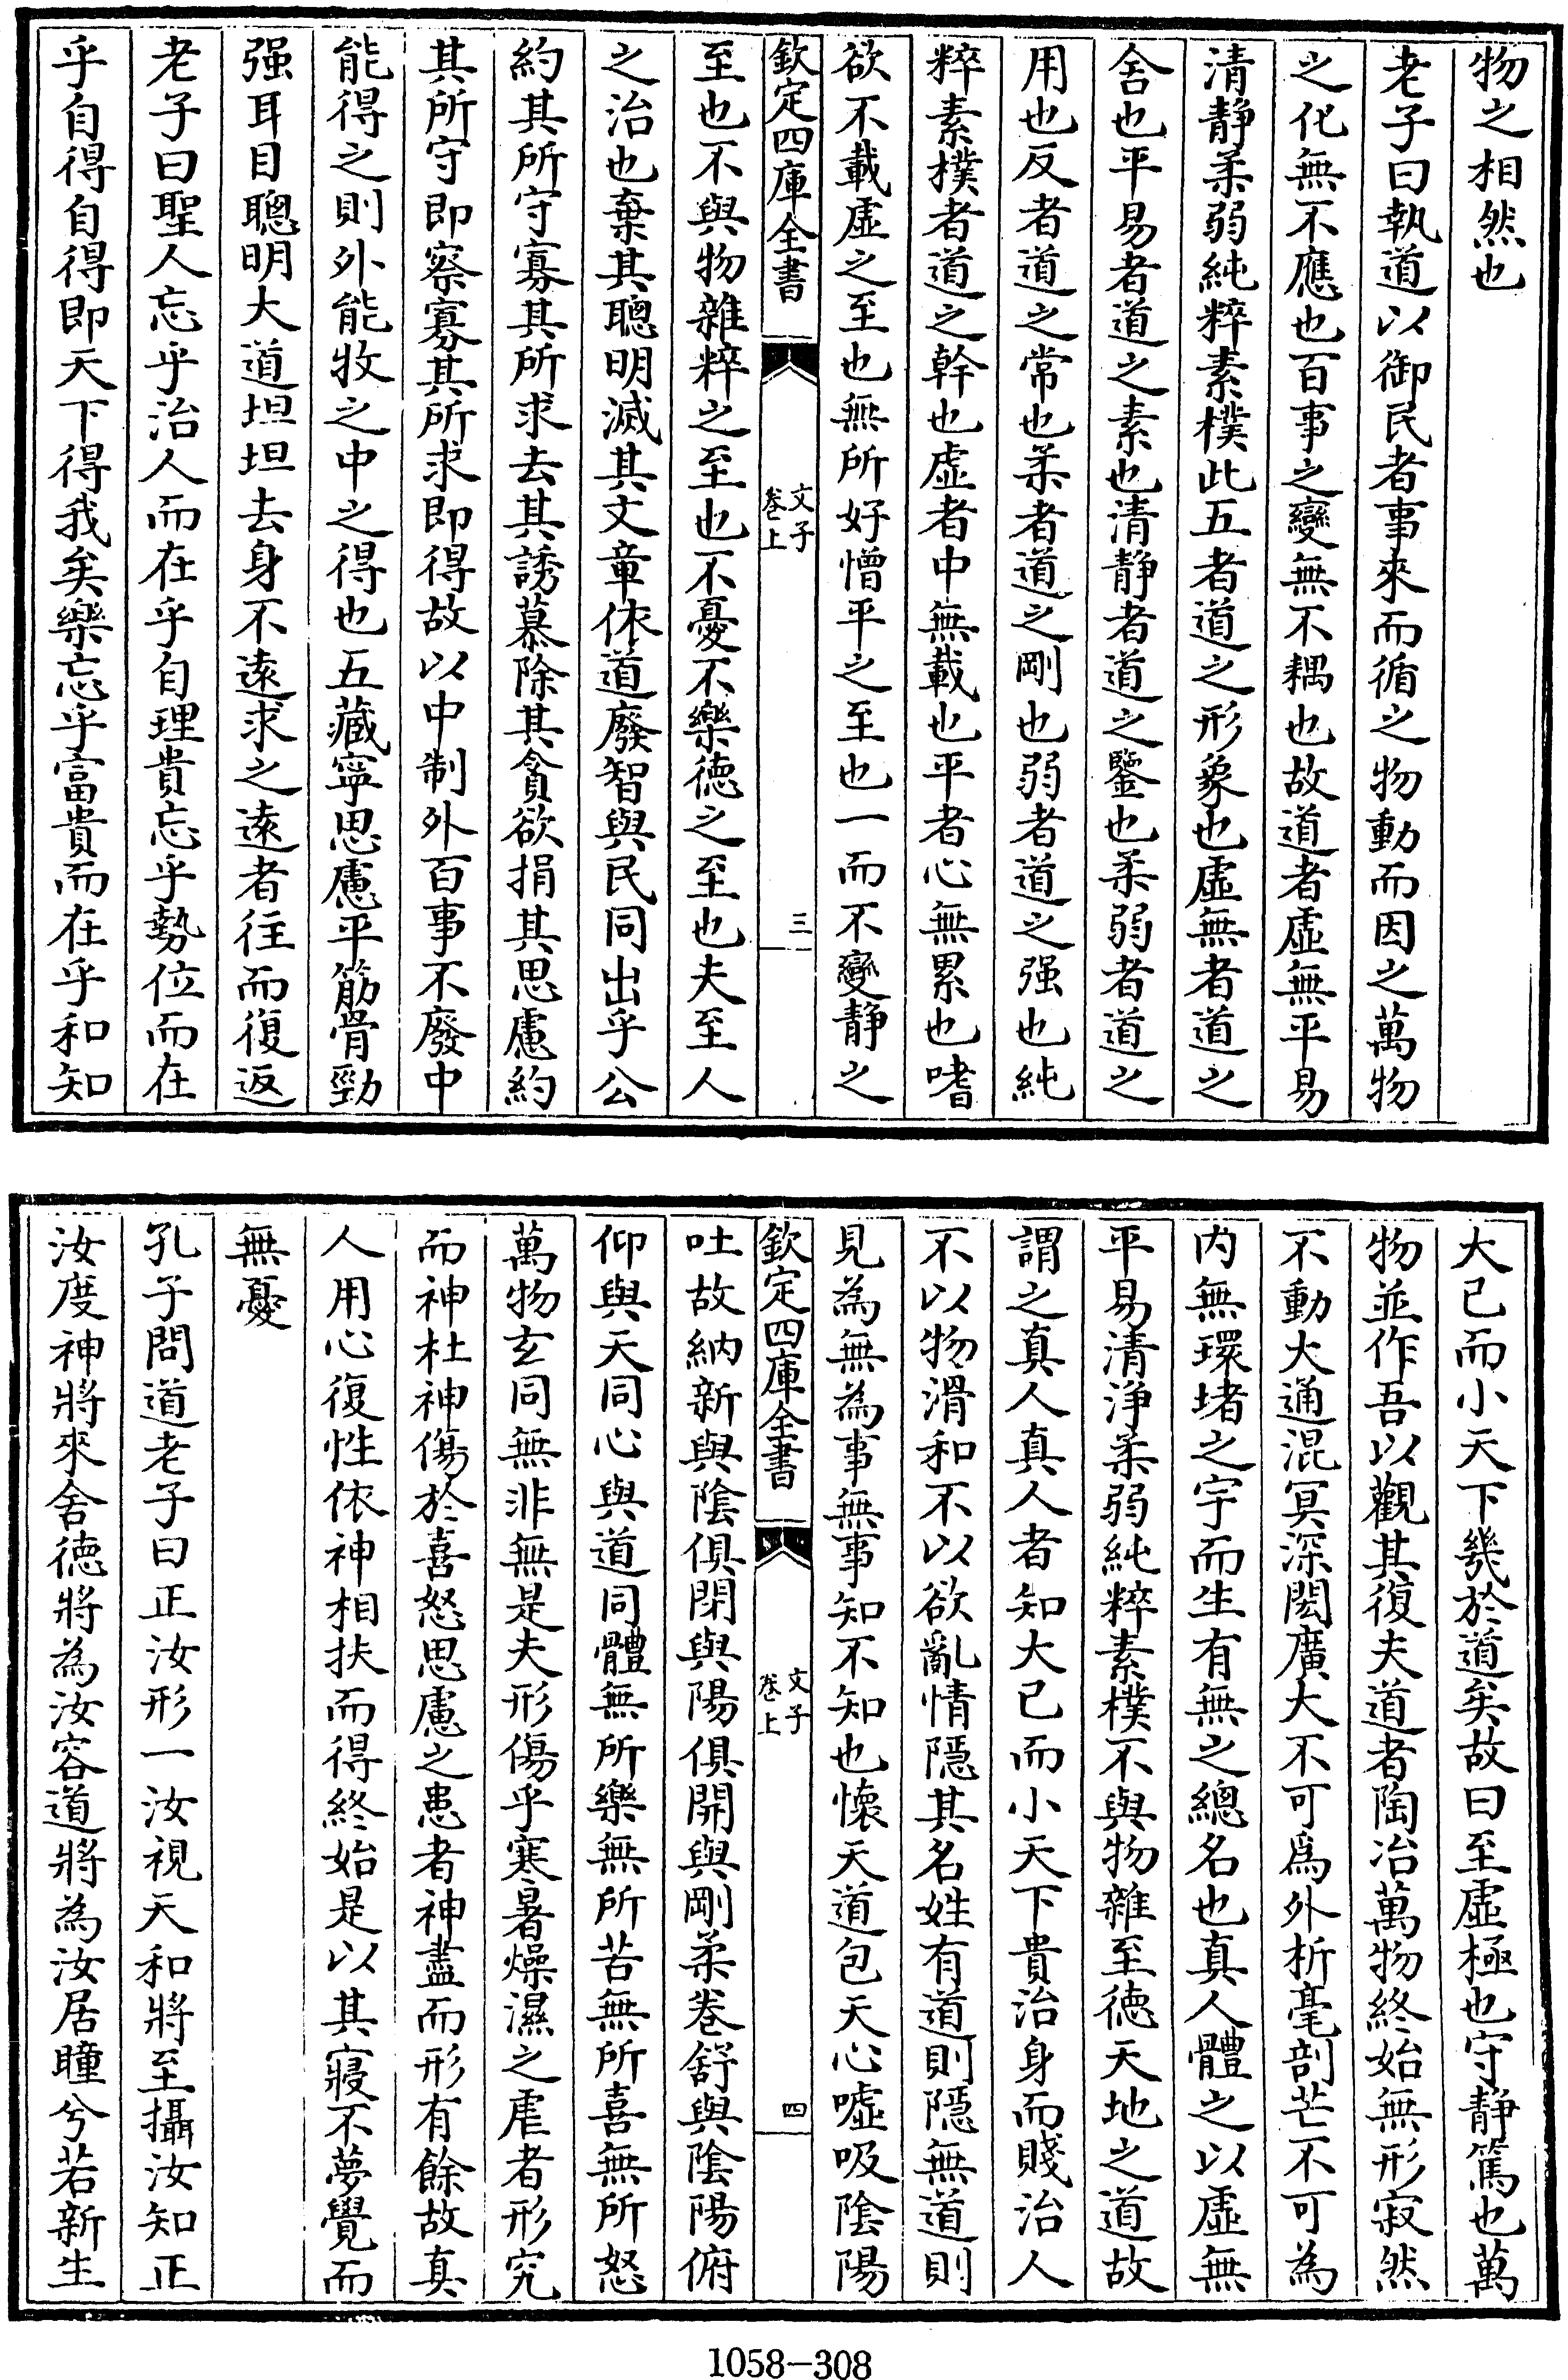 物之相然也
老子曰執道以御民者事來而循之物動而因之萬物
之化無不應也百事之變無不耦也故道者虛無平易
清靜柔弱純粹素樸此五者道之形象也虛無者道之
舍也平易者道之素也清靜者道之鑒也柔弱者道之
用也反者道之常也柔者道之剛也弱者道之强也純
粹素樸者道之幹也虛者中無載也平者心無累也嗜
欲不載虛之至也無所好憎平之至也一而不變靜之
欽定四庫全書
文子
卷上
三
至也不與物雜粹之至也不憂不樂德之至也夫至人
之治也棄其聰明滅其文章依道廢智與民同出乎公
約其所守寡其所求去其誘慕除其貪欲捐其思慮約
其所守即察寡其所求即得故以中制外百事不廢中
能得之則外能牧之中之得也五藏寧思慮平筋骨勁
强耳目聰明大道坦坦去身不遠求之遠者往而復返
老子曰聖人忘乎治人而在乎自理貴忘乎勢位而在
乎自得自得即天下得我矣樂忘乎富貴而在乎和知
大己而小天下幾於道矣故曰至虛極也守靜篤也萬
物並作吾以觀其復夫道者陶冶萬物終始無形寂然
不動大通混冥深閎廣大不可爲外析毫剖芒不可為
内無環堵之宇而生有無之總名也真人體之以虛無
平易清淨柔弱純粹素樸不與物雜至德天地之道故
謂之真人真人者知大己而小天下貴治身而賤治人
不以物滑和不以欲亂情隱其名姓有道則隱無道則
見為無為事無事知不知也懷天道包天心噓吸陰陽
欽定四庫全書
文子
卷上
四
吐故納新與陰俱閉與陽俱開與剛柔卷舒與陰陽俯
仰與天同心與道同體無所樂無所苦無所喜無所怒
萬物玄同無非無是夫形傷乎寒暑燥濕之虐者形究
而神杜神傷於喜怒思慮之患者神盡而形有餘故真
人用心復性依神相扶而得終始是以其寢不夢覺而
無憂
孔子問道老子曰正汝形一汝視天和將至攝汝知正
汝度神將來舍德將為汝容道將為汝居瞳兮若新生
1058-308